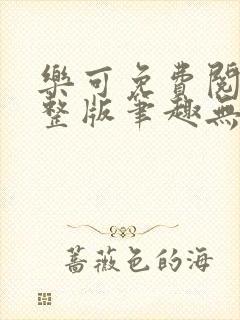 樂可免費閱
整版筆趣無
蔷薇色的海